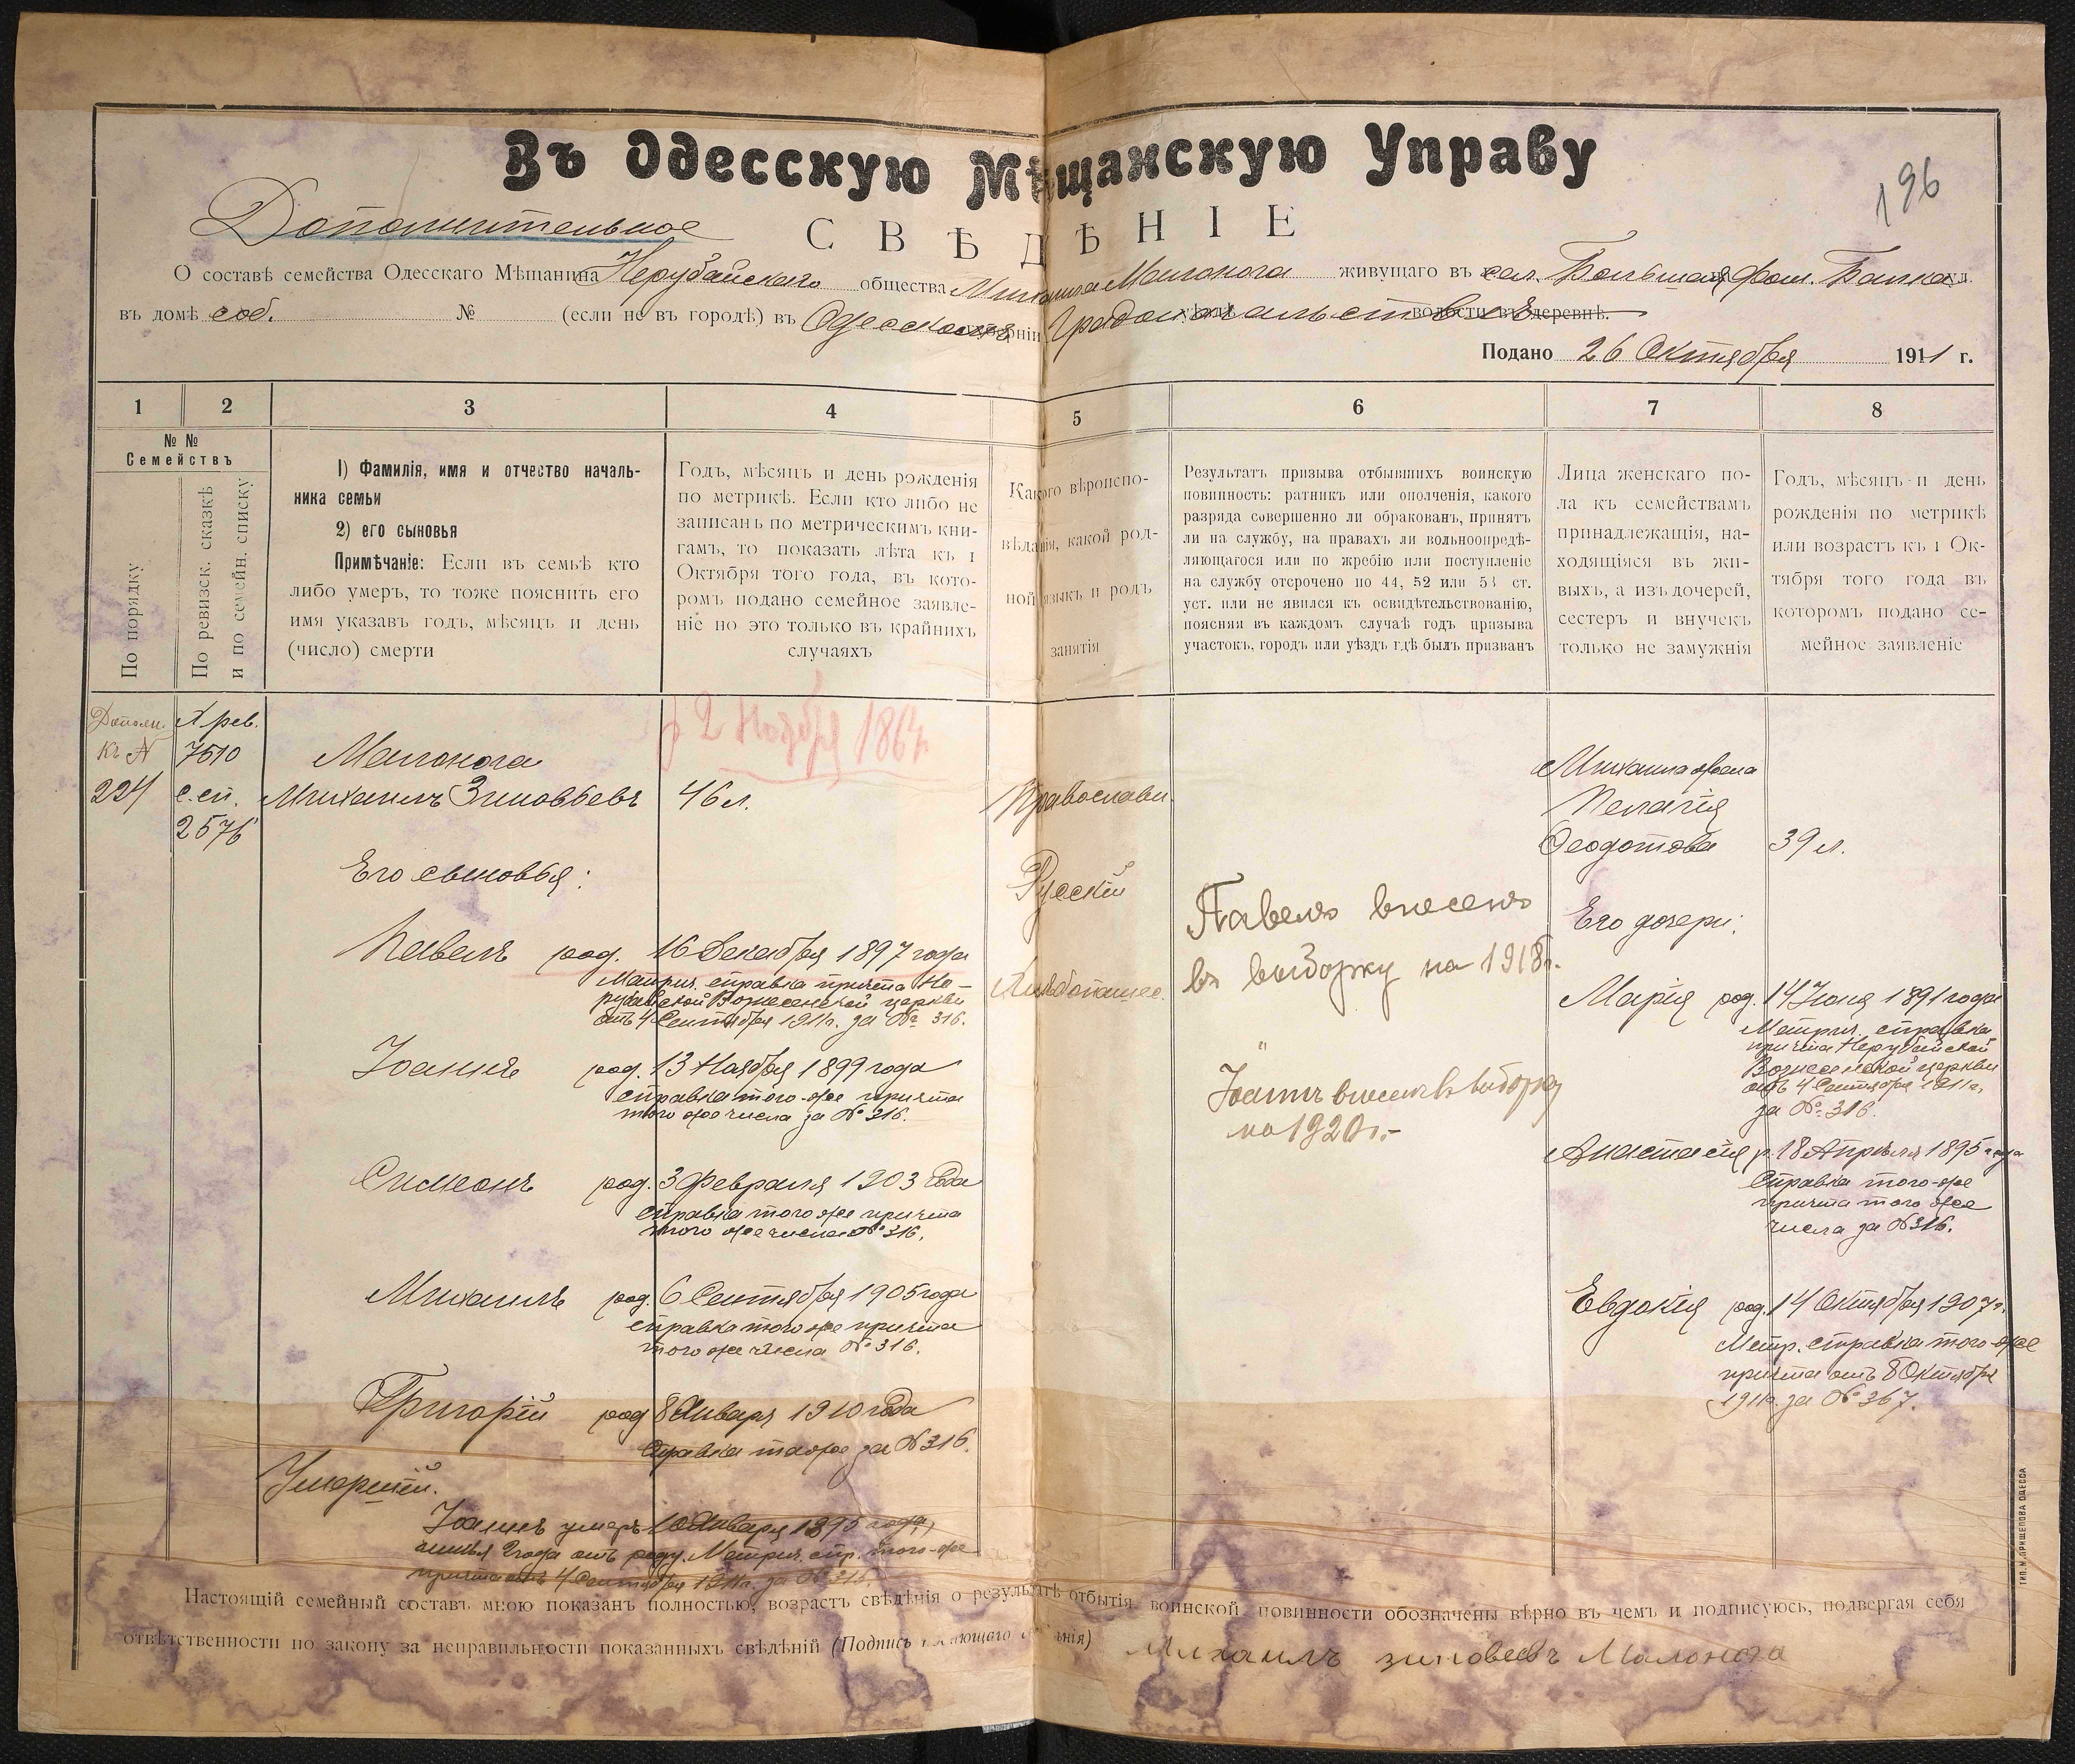 Въ Одесскую Мѣщанскую Управу
196
Дополнительное
СВѢДѢНІЕ
О составѣ семейства Одесскаго Мѣщанина Нерубайскаго общества Михаила Малонога живущаго въ сел. Большая Фом. Балка ул.
въ домѣ соб. № (если не въ городѣ) въ Одесскомъ Градоначальствѣ волости въ деревнѣ.
Подано 26 Октября 1911 г.
1 2 3 4 5 6 7 8
№ №
Семействъ
По порядку
По ревизск. сказкѣ
и по семейн. списку
1) Фамилія, имя и отчество началь-
ника семьи
2) его сыновья
Примѣчаніе: Если въ семьѣ кто
либо умеръ, то тоже пояснить его
имя указавъ годъ, мѣсяцъ и день
(число) смерти
Годъ, мѣсяцъ и день рожденія
по метрикѣ. Если кто либо не
записанъ по метрическимъ кни-
гамъ, то показать лѣта къ 1
Октября того года, въ кото-
ромъ подано семейное заявле-
ніе но это только въ крайнихъ
случаяхъ
Какого вѣроиспо-
вѣданія, какой род-
ной языкъ и родъ
занятія
Результатъ призыва отбывшихъ воинскую
повинность: ратникъ или ополченія, какого
разряда совершенно ли обракованъ, принятъ
ли на службу, на правахъ ли вольноопредѣ-
ляющагося или по жребію или поступленіе
на службу отсрочено по 44, 52 или 53 ст.
уст. или не явился къ освидѣтельствованію,
поясняя въ каждомъ случаѣ годъ призыва
участокъ, городъ или уѣздъ гдѣ былъ призванъ
Лица женскаго по-
ла къ семействамъ
принадлежащія, на-
ходящіяся въ жи-
выхъ, а изъ дочерей,
сестеръ и внучекъ
только не замужнія
Годъ, мѣсяцъ и день
рожденія по метрикѣ
или возрастъ къ 1 Ок-
тября того года въ
которомъ подано се-
мейное заявленіе
Дополн.
къ №
224
X рев.
7510
с.сп.
2576
р 2 Ноября 1864
Малонога
Михаилъ Зиновьевъ 46 л.
Его сыновья:
Павелъ род. 16 Декабря 1897 года
Метрич. справка причта Не-
рубайской Вознесенской церкви
отъ 4 Сентября 1911 г. за № 316.
Іоаннъ род. 13 Ноября 1899 года
справка того-же причта
того же числа за № 316.
Симеонъ род. 3 Февраля 1903 года
справка того же причта
того же числа № 316.
Михаилъ род. 6 Сентября 1905 года
справка того же причта
того же числа № 316.
Григорій род 8 Января 1910 года
Справка таже за № 316.
Умершій.
Іоаннъ умеръ 10 Января 1895 года,
имѣя 2 года отъ роду. Метрич. спр. того-же
причта отъ 4 Сентября 1911 г. за № 316.
Православн.
Русскій
Хлѣбопашес.
Павелъ внесенъ
въ выборку на 1918 г.
"
Іоаннъ внесенъ въ выборку
на 1920 г.-
Михаила жена
Пелагія
Ѳеодотова 39 л.
Его дочери:
Марія род. 14 Іюля 1891 года
Метрич. справка
причта Нерубайской
Вознесенской церкви
отъ 4 Сентября 1911 г.
за № 316.
Анастасія р. 18 Апрѣля 1895 года
Справка того-же
причта того же
числа за № 316.
Евдокія род. 14 Октября 1907 г.
Метр. справка того-же
причта отъ 8 Октября
1911 г. за № 367.
Настоящій семейный составъ мною показанъ полностью, возрастъ свѣдѣнія о результатѣ отбытія воинской повинности обозначены вѣрно въ чемъ и подписуюсь, подвергая себя
отвѣтственности по закону за неправильности показанныхъ свѣдѣній (Подпись
Михаилъ зиновевъ Малонога
ТИП. М. ПРИЩЕПОВА ОДЕССА